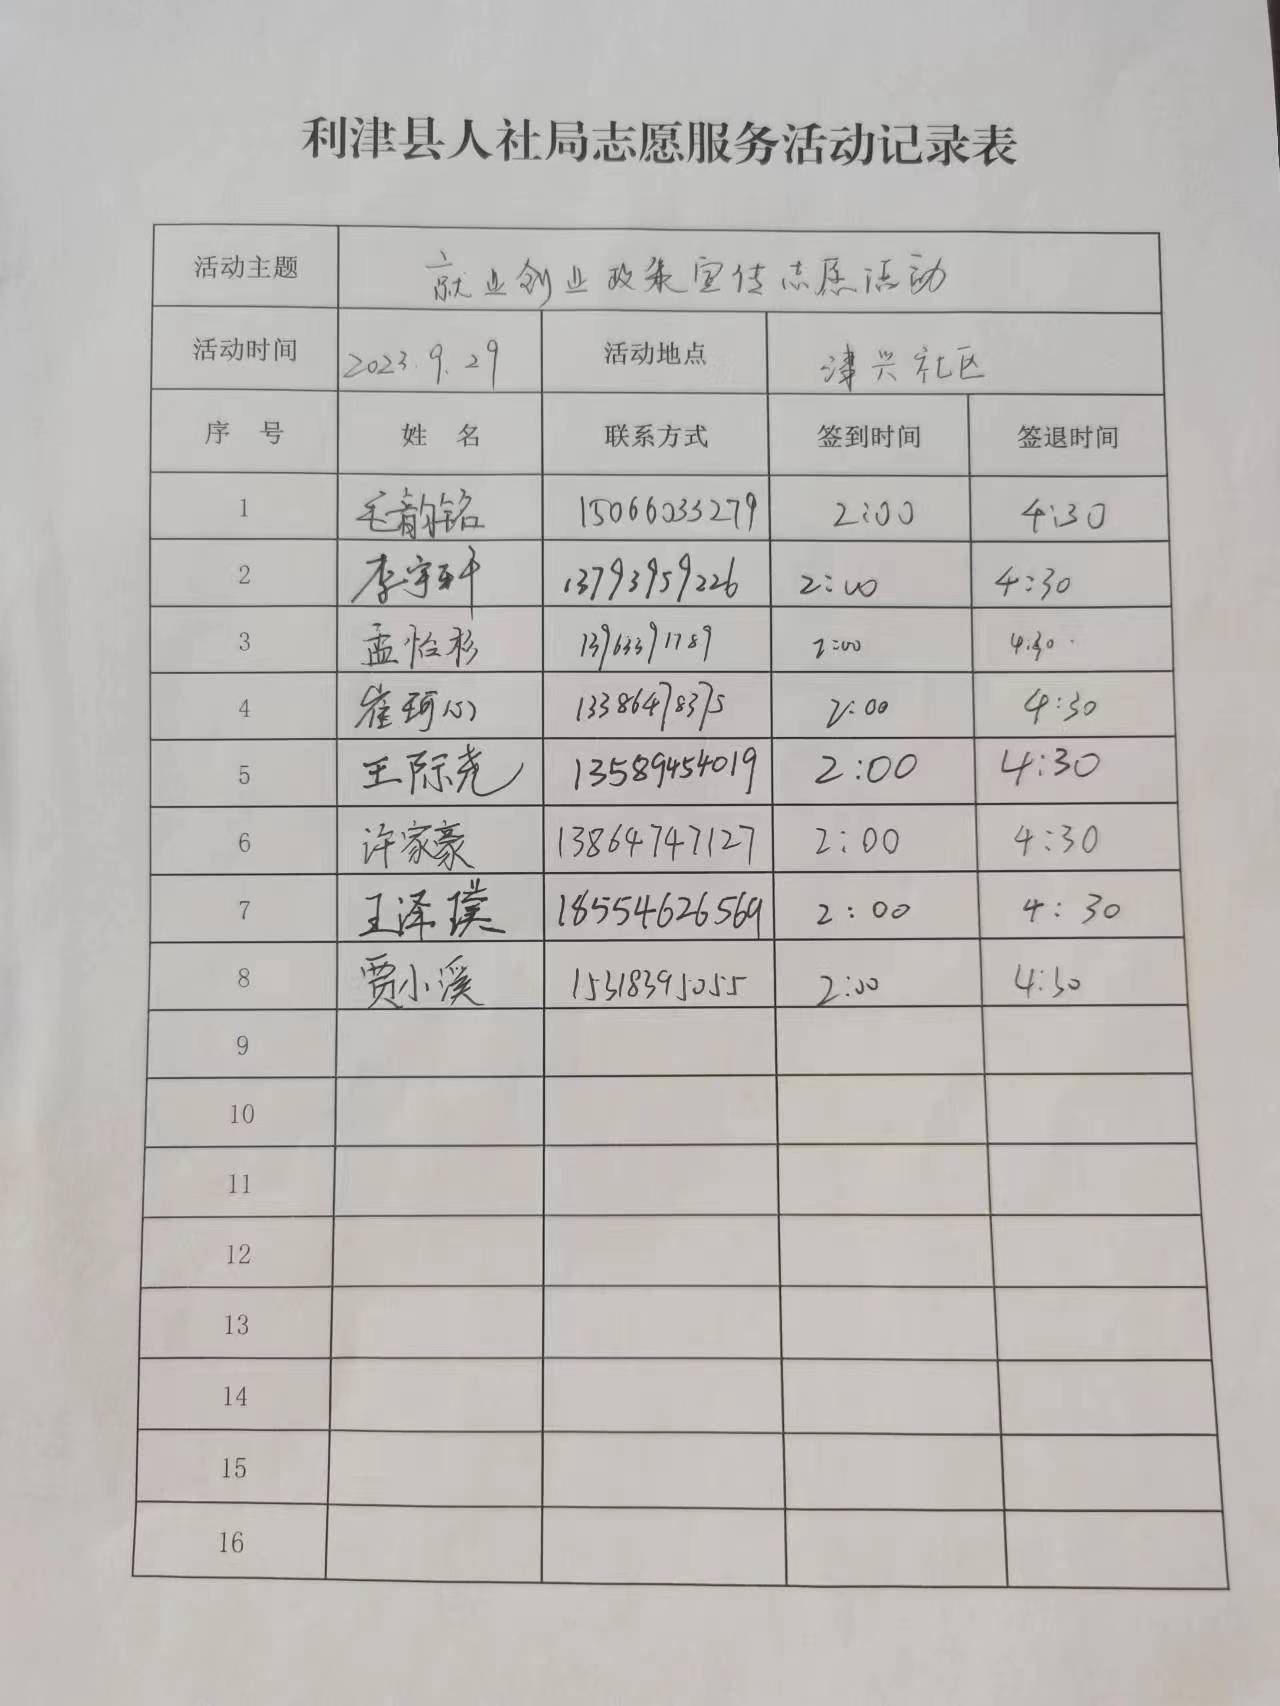 利津县人社局志愿服务活动记录表
活动主题 就业创业政策宣传志愿活动
活动时间 2023.9.29 活动地点 津兴社区
序 号 姓 名 联系方式 签到时间 签退时间
1 毛韵铭 15066033279 2:00 4:30
2 李宇轩 13793959226 2:00 4:30
3 孟怡杉 13963391789 2:00 4:30
4 崔珂心 13386478375 2:00 4:30
5 王际尧 13589454019 2:00 4:30
6 许家豪 13864747127 2:00 4:30
7 王泽璞 18554626569 2:00 4:30
8 贾小溪 15318395055 2:00 4:30
9
10
11
12
13
14
15
16